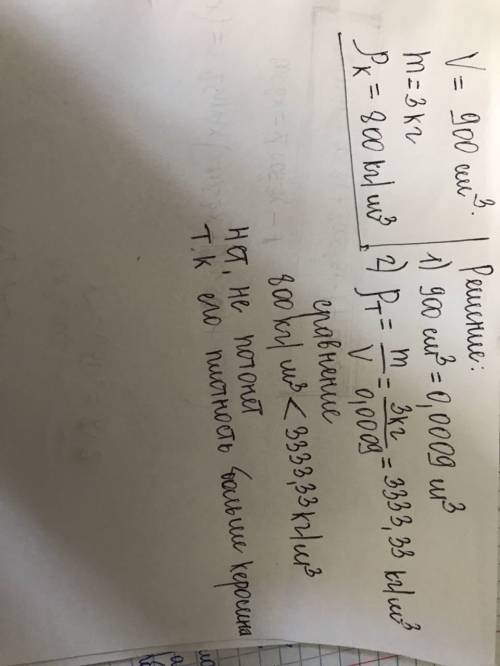 V = 900 см³.
m = 3 кг
ρк = 800 кг/м³
Решение:
1) 900 см³ = 0,0009 м³
2) ρт = m/V = 3кг/0,0009 = 3333,33 кг/м³
сравнение
800 кг/м³ < 3333,33 кг/м³
Нет, не потонет
т.к его плотность больше керосина